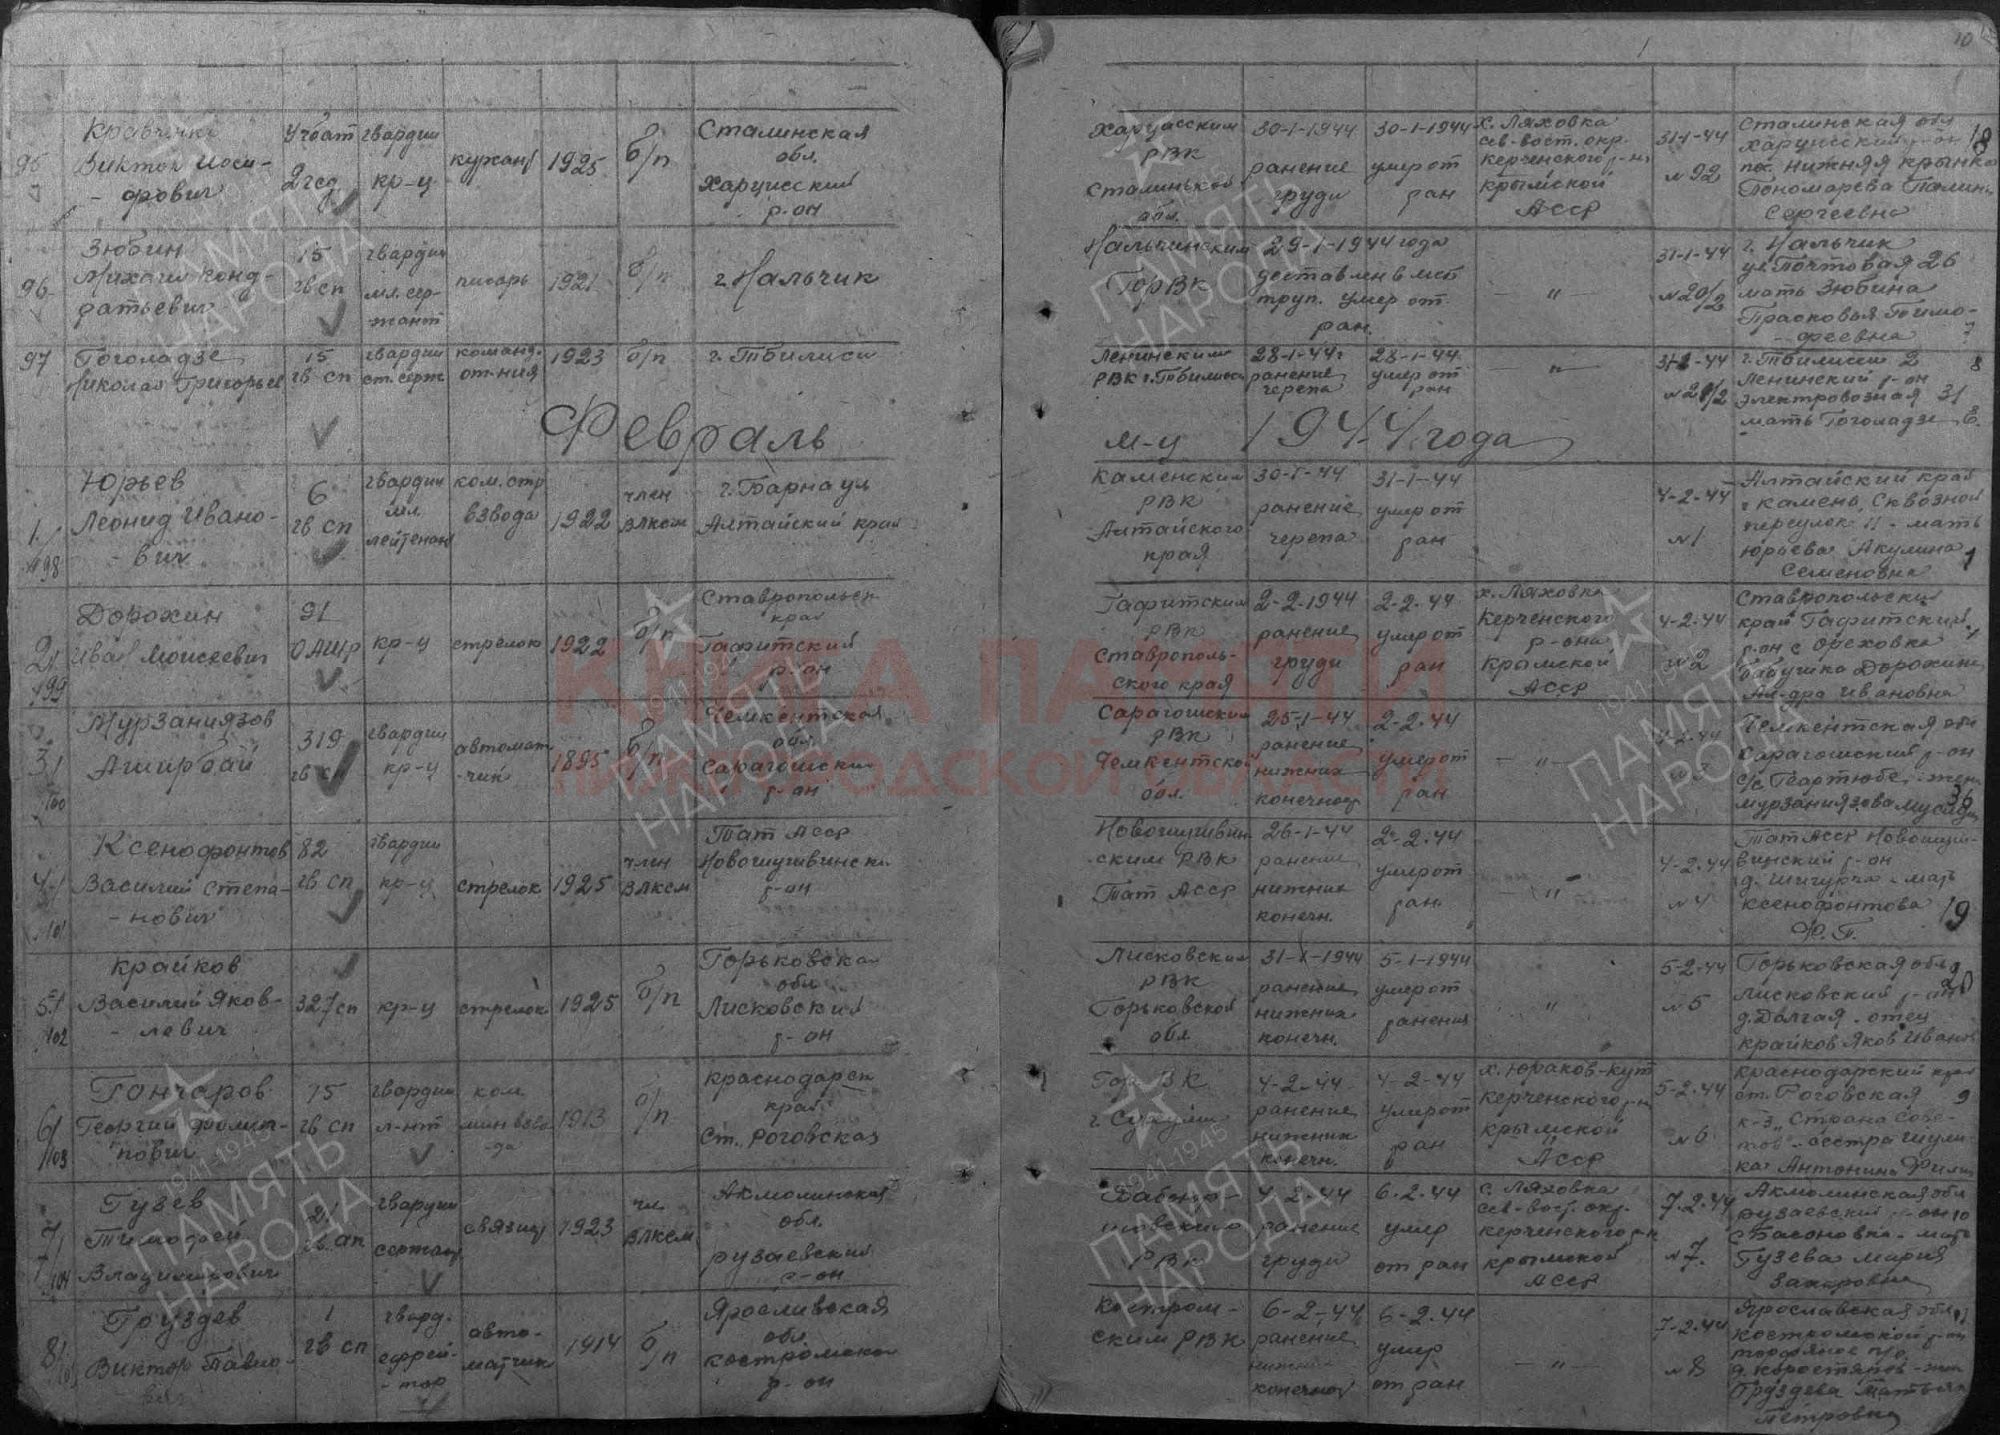 10
95
Кравченко
Виктор Иоси-
- фович
Учбат
2 гсд
гвардии
кр-ц
курсант
1925
б/п
Сталинская
обл.
Харцисский
р-он
Харцисским
РВК
Сталинской
обл.
30-1-1944
ранение
груди
30-1-1944
умер от
ран
х. Ляховка
сев-вост. окр.
Керченского р-на
Крымской
АССР
31-1-44
№ 92
Сталинская обл
Харцисский р-он
пос. Нижняя Крынка
Пономарева Полина
Сергеевна
18
96
Зюбин
Михаил Конд-
ратьевич
15
гв сп
гвардии
мл. сер-
жант
писарь
1921
б/п
г. Нальчик
Нальчикским
ГорВК
29-1-1944 года
доставлен в мсб
труп. Умер от
ран.
— " —
31-1-44
№ 20/2
г. Нальчик
ул. Почтовая 26
мать Зюбина
Прасковья Тимо-
- феевна
97
Гоголадзе
Николай Григорьев
15
гв сп
гвардии
ст. серж
команд.
от-ния
1923
б/п
г. Тбилиси
Ленинским
РВК г. Тбилиси
28-1-44 г
ранение
черепа
28-1-44
умер от
ран
— " —
31-1-44
№ 21/2
г. Тбилиси 2
Ленинский р-он
Электровозная 31
мать Гоголадзе Е.
8
Февраль м-ц 1944 года
1.
98
Юрьев
Леонид Ивано-
- вич
6
гв сп
гвардии
мл.
лейтенант
ком. стр
взвода
1922
член
ВЛКСМ
г. Барнаул
Алтайский край
Каменским
РВК
Алтайского
края
30-1-44
ранение
черепа
31-1-44
умер от
ран
4-2-44
№ 1
Алтайский край
г Камень, Сквозной
переулок 11 - мать
Юрьева Акулина
Семеновна
1
2/
99
Дорохин
Иван Моисеевич
91
ОАШР
кр-ц
стрелок
1922
б/п
Ставропольск
край
Тафитский
р-он
Тафитским
РВК
Ставрополь-
ского края
2-2-1944
ранение
груди
2-2-44
умер от
ран
х. Ляховка
Керченского
р-она
Крымской
АССР
4-2-44
№ 2
Ставропольский
край Тафитский
р-он с Ореховка
бабушка Дорохина
Ал-дра Ивановна
3/
100
Мурзаниязов
Аширбай
319
гв сп
гвардии
кр-ц
автомат-
-чик
1895
б/п
Чемкентская
обл.
Сарагошский
р-он
Сарагошским
РВК
Чемкентской
обл.
25-1-44
ранение
нижних
конечност
2-2-44
умер от
ран
— " —
4-2-44
Чемкентская обл
Сарагошский р-он
жена
36
4/
101
Ксенофонтов
Василий Степа-
- нович
82
гв сп
гвардии
кр-ц
стрелок
1925
член
ВЛКСМ
Тат АССР
Новошушвинский
р-он
Новошушвин-
ским РВК
Тат АССР
26-1-44
ранение
нижних
конечн.
2-2-44
умер от
ран.
— " —
4-2-44
№ 4
Тат АССР Новошуш-
винский р-он
д. Шигурча - мать
Ксенофонтова
Ф. П.
19
5/
102
Крайков
Василий Яков-
- левич
327 сп
кр-ц
стрелок
1925
б/п
Горьковская
обл
Лисковский
р-он
Лисковским
РВК
Горьковской
обл
31-X-1944
ранение
нижних
конечн.
5-1-1944
умер от
ранения
"
5-2-44
№ 5
Горьковская обл
Лисковский р-он
д. Долгая - отец
Крайков Яков Иванов
20
6/
103
Гончаров
Георгий Филип-
пович
15
гв сп
гвардии
л-нт
ком.
мин взво-
да
1913
б/п
Краснодарск
край
Ст. Роговская
Гор ВК
г. Сухуми
4-2-44
ранение
нижних
конечн.
4-2-44
умер от
ран
х. Юраков-Кут
Керченского р-на
Крымской
АССР
5-2-44
№ 6
Краснодарский край
ст. Роговская
к-з „Страна Сове-
тов" - сестра Шули-
ка Антонина Филип
9
7/
104
Гузев
Тимофей
Владимирович
21
гв ап
гвардии
сержант
связист
1923
чл.
ВЛКСМ
Акмолинская
обл.
Рузаевский
р-он
РВК
4-2-44
ранение
груди
6-2-44
умер
от ран
с. Ляховка
сев-вост. окр.
Керченского р-н
Крымской
АССР
7-2-44
№ 7.
Акмолинская обл
Рузаевский р-он
мать
Гузева Мария
Захаровна
10
8/
Груздев
Виктор Павло-
вич
1
гв сп
гвард.
ефрей-
- тор
авто-
матчик
1914
б/п
Ярославская
обл.
Костромской
р-он
Костром-
ским РВК
6-2-44
ранение
нижних
конечност
6-2-44
умер
от ран
— " —
7-2-44
№ 8
Ярославская обл
Костромской р-он
торфяное п/о
д. Коростяпов - жена
Груздева Татьяна
Петровна
11
КНИГА ПАМЯТИ
НИЖЕГОРОДСКОЙ ОБЛАСТИ
1941-1945
ПАМЯТЬ
НАРОДА